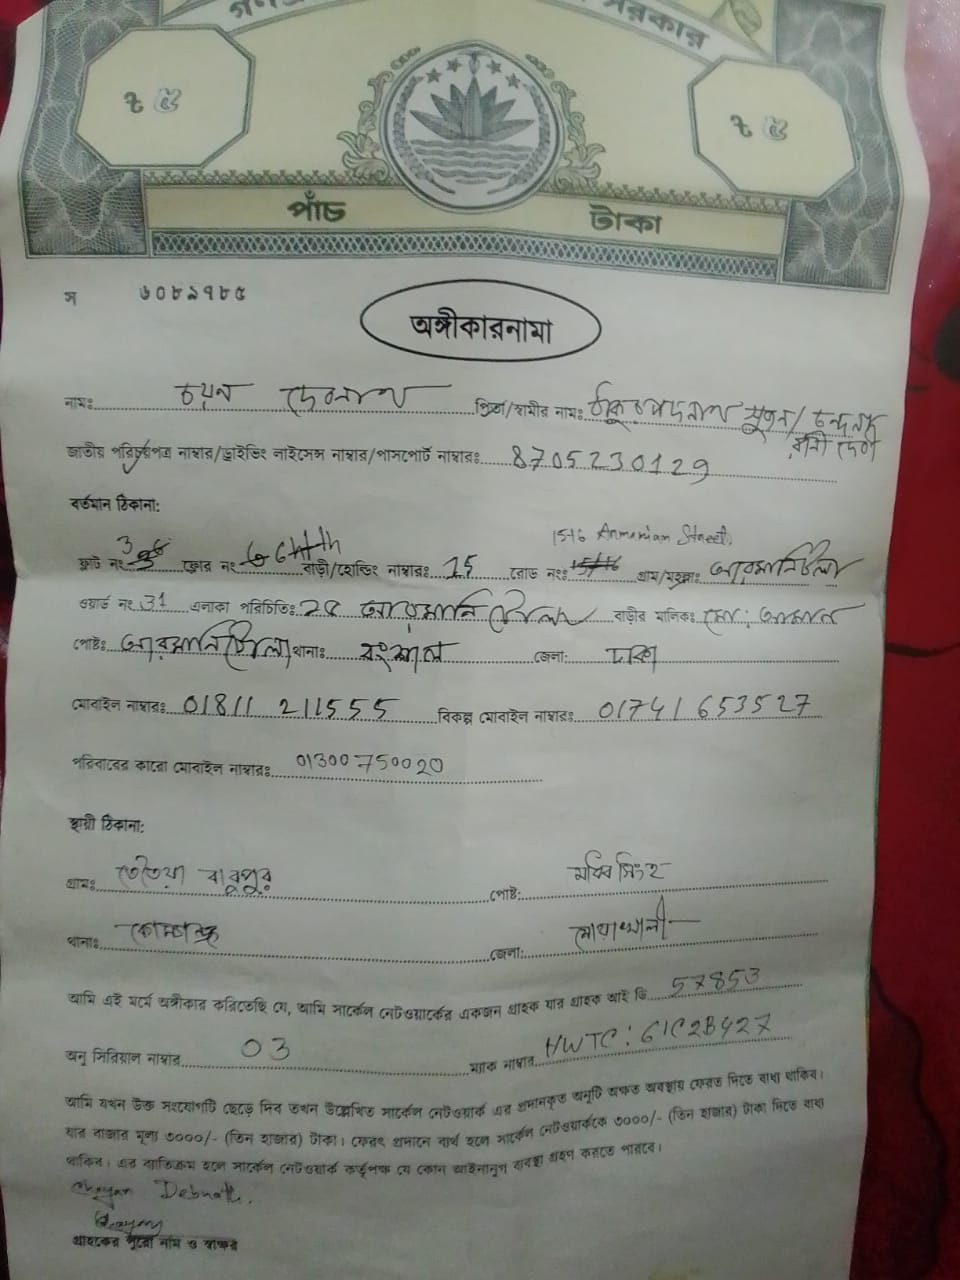 সরকার
৳ ৫
৳ ৫
পাঁচ টাকা
স ৬০৮৯৭৮৫
অঙ্গীকারনামা
নামঃ চয়ন দেবনাথ পিতা/স্বামীর নামঃ
জাতীয় পরিচয়পত্র নাম্বার/ড্রাইভিং লাইসেন্স নাম্বার/পাসপোর্ট নাম্বারঃ 8705230129
বর্তমান ঠিকানা:
15-16 Armenian Street
ফ্লাট নং 3 ফ্লোর নং 6th বাড়ী/হোল্ডিং নাম্বারঃ 15 রোড নংঃ গ্রাম/মহল্লাঃ আরমানিটোলা
ওয়ার্ড নং 31 এলাকা পরিচিতিঃ আরমানিটোলা বাড়ীর মালিকঃ মো:
পোষ্টঃ আরমানিটোলা থানাঃ বংশাল জেলা: ঢাকা
মোবাইল নাম্বারঃ 01811 211555 বিকল্প মোবাইল নাম্বারঃ 01741653527
পরিবারের কারো মোবাইল নাম্বারঃ 01300750020
স্থায়ী ঠিকানা:
গ্রামঃ বাবুপুর পোষ্ট:
থানাঃ জেলা: নোয়াখালী
আমি এই মর্মে অঙ্গীকার করিতেছি যে, আমি সার্কেল নেটওয়ার্কের একজন গ্রাহক যার গ্রাহক আই ডি 57853
অনু সিরিয়াল নাম্বার 03 ম্যাক নাম্বার HWTC: 61C2B427
আমি যখন উক্ত সংযোগটি ছেড়ে দিব তখন উল্লেখিত সার্কেল নেটওয়ার্ক এর প্রদানকৃত অনুটি অক্ষত অবস্থায় ফেরত দিতে বাধ্য থাকিব।
যার বাজার মূল্য ৩০০০/- (তিন হাজার) টাকা। ফেরৎ প্রদানে ব্যর্থ হলে সার্কেল নেটওয়ার্ককে ৩০০০/- (তিন হাজার) টাকা দিতে বাধ্য
থাকিব। এর ব্যতিক্রম হলে সার্কেল নেটওয়ার্ক কর্তৃপক্ষ যে কোন আইনানুগ ব্যবস্থা গ্রহণ করতে পারবে।
Chayan Debnath.
গ্রাহকের পুরো নাম ও স্বাক্ষর